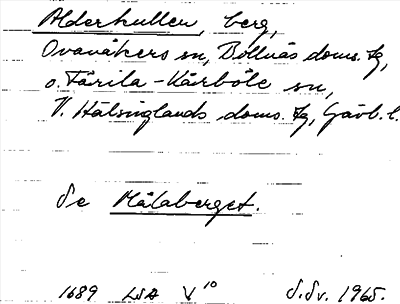 Alderhullen, berg,
Ovanåkers sn, Bollnäs doms. tg,
o. Färila-Kårböle sn,
V. Hälsinglands doms. tg, Gävb. l.
Se Målaberget.
1689 LSA V 10 S.Sv. 1965.